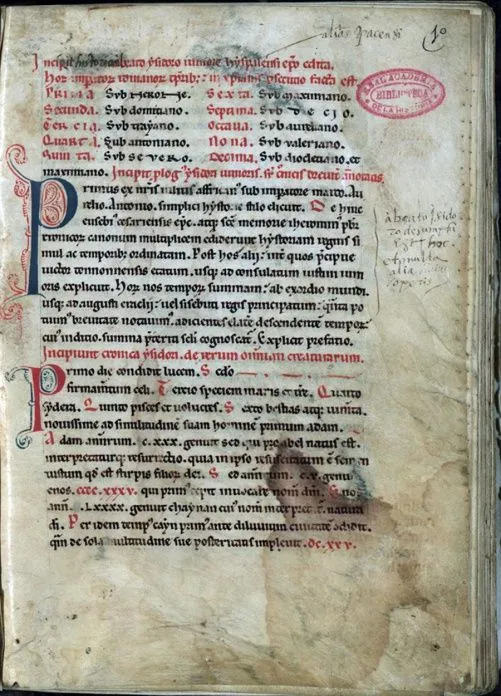 aliàs Pacensi
1º
Incipit historia beato ysidoro iuniore hyspalensi epo edita.
Hor impator romanor tpribz in xpianis psecutio facta est.
Prima Sub nerone. Sexta. Sub maximiano.
Secunda. Sub domiciano. Septima. Sub decio.
Tercia. Sub trayano. Octaua. Sub aureliano.
Quarta. Sub antoniano. Nona. Sub valeriano.
Quinta. Sub seuero. Decima. Sub diocleciano. et
maximiano. Incipit plog ysidori iunioris.
REAL ACADEMIA
BIBLIOTECA
DE LA HISTORIA
Primus ex nris iulius affrican sub impatore marco. Au
relio. Antonio. simplici hystorie stilo elicuit. De hinc
eusebi cesariensis epc. atqz sce memorie iheronim pbr
cronicor canonum multiplicem ediderunt hystoriam regnis si
mul ac temporibz ordinatam. Post hos alij: int quos precipue
uictor tonnonensis ecclesie. usqz ad consulatum iustini iuni
oris explicuit. Hor nos tempor summam: ab exordio mundi.
usqz ad augusti eraclij: uel sisebuti regis principatum: qnta po
tuim breuitate notauim. adicientes e latere descendente tempor:
cui indicio. summa pterita seli cognoscat. Explicit prefatio.
Incipiunt cronica ysidori. de rerum omnium creaturarum.
Primo die condidit lucem. Scdo
firmamentum celi. Tercio speciem maris et terre. Quarto
sydera. Quinto pisces et uolucres. Sexto bestias atqz iumta.
nouissime ad similitudine suam hominem primum adam.
Adam annorum. c.xxx. genuit sed qui pro abel natus est.
interpretaturqz resurrectio. quia in ipso resuscitatum e semen
iustum qd est stirpis filior dei. Sed annorum. c.v. genu
enos. cccc.xxxv. qui prim cepit inuocare nomen dni. Eno
ann. .Lxxxx. genuit chaynan cui nomen interpretat natura
di. Per idem temp cayn prim ante diluuium ciuitate condidit.
qm de sola multitudine sue posteritatis impleuit. dc.xxv.
à beato Isido
est hoc
et multa
alia
operis